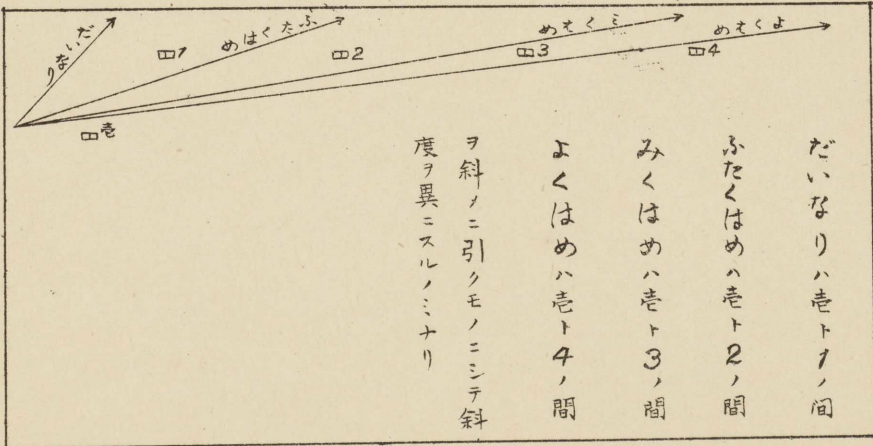 だいなり
ふたくはめ
みくはめ
よくはめ
1
2
3
4
壱
だいなりハ壱ト1ノ間
ふたくはめハ壱ト2ノ間
みくはめハ壱ト3ノ間
よくはめハ壱ト4ノ間
ヲ斜メニ引クモノニシテ斜
度ヲ異ニスルノミナリ